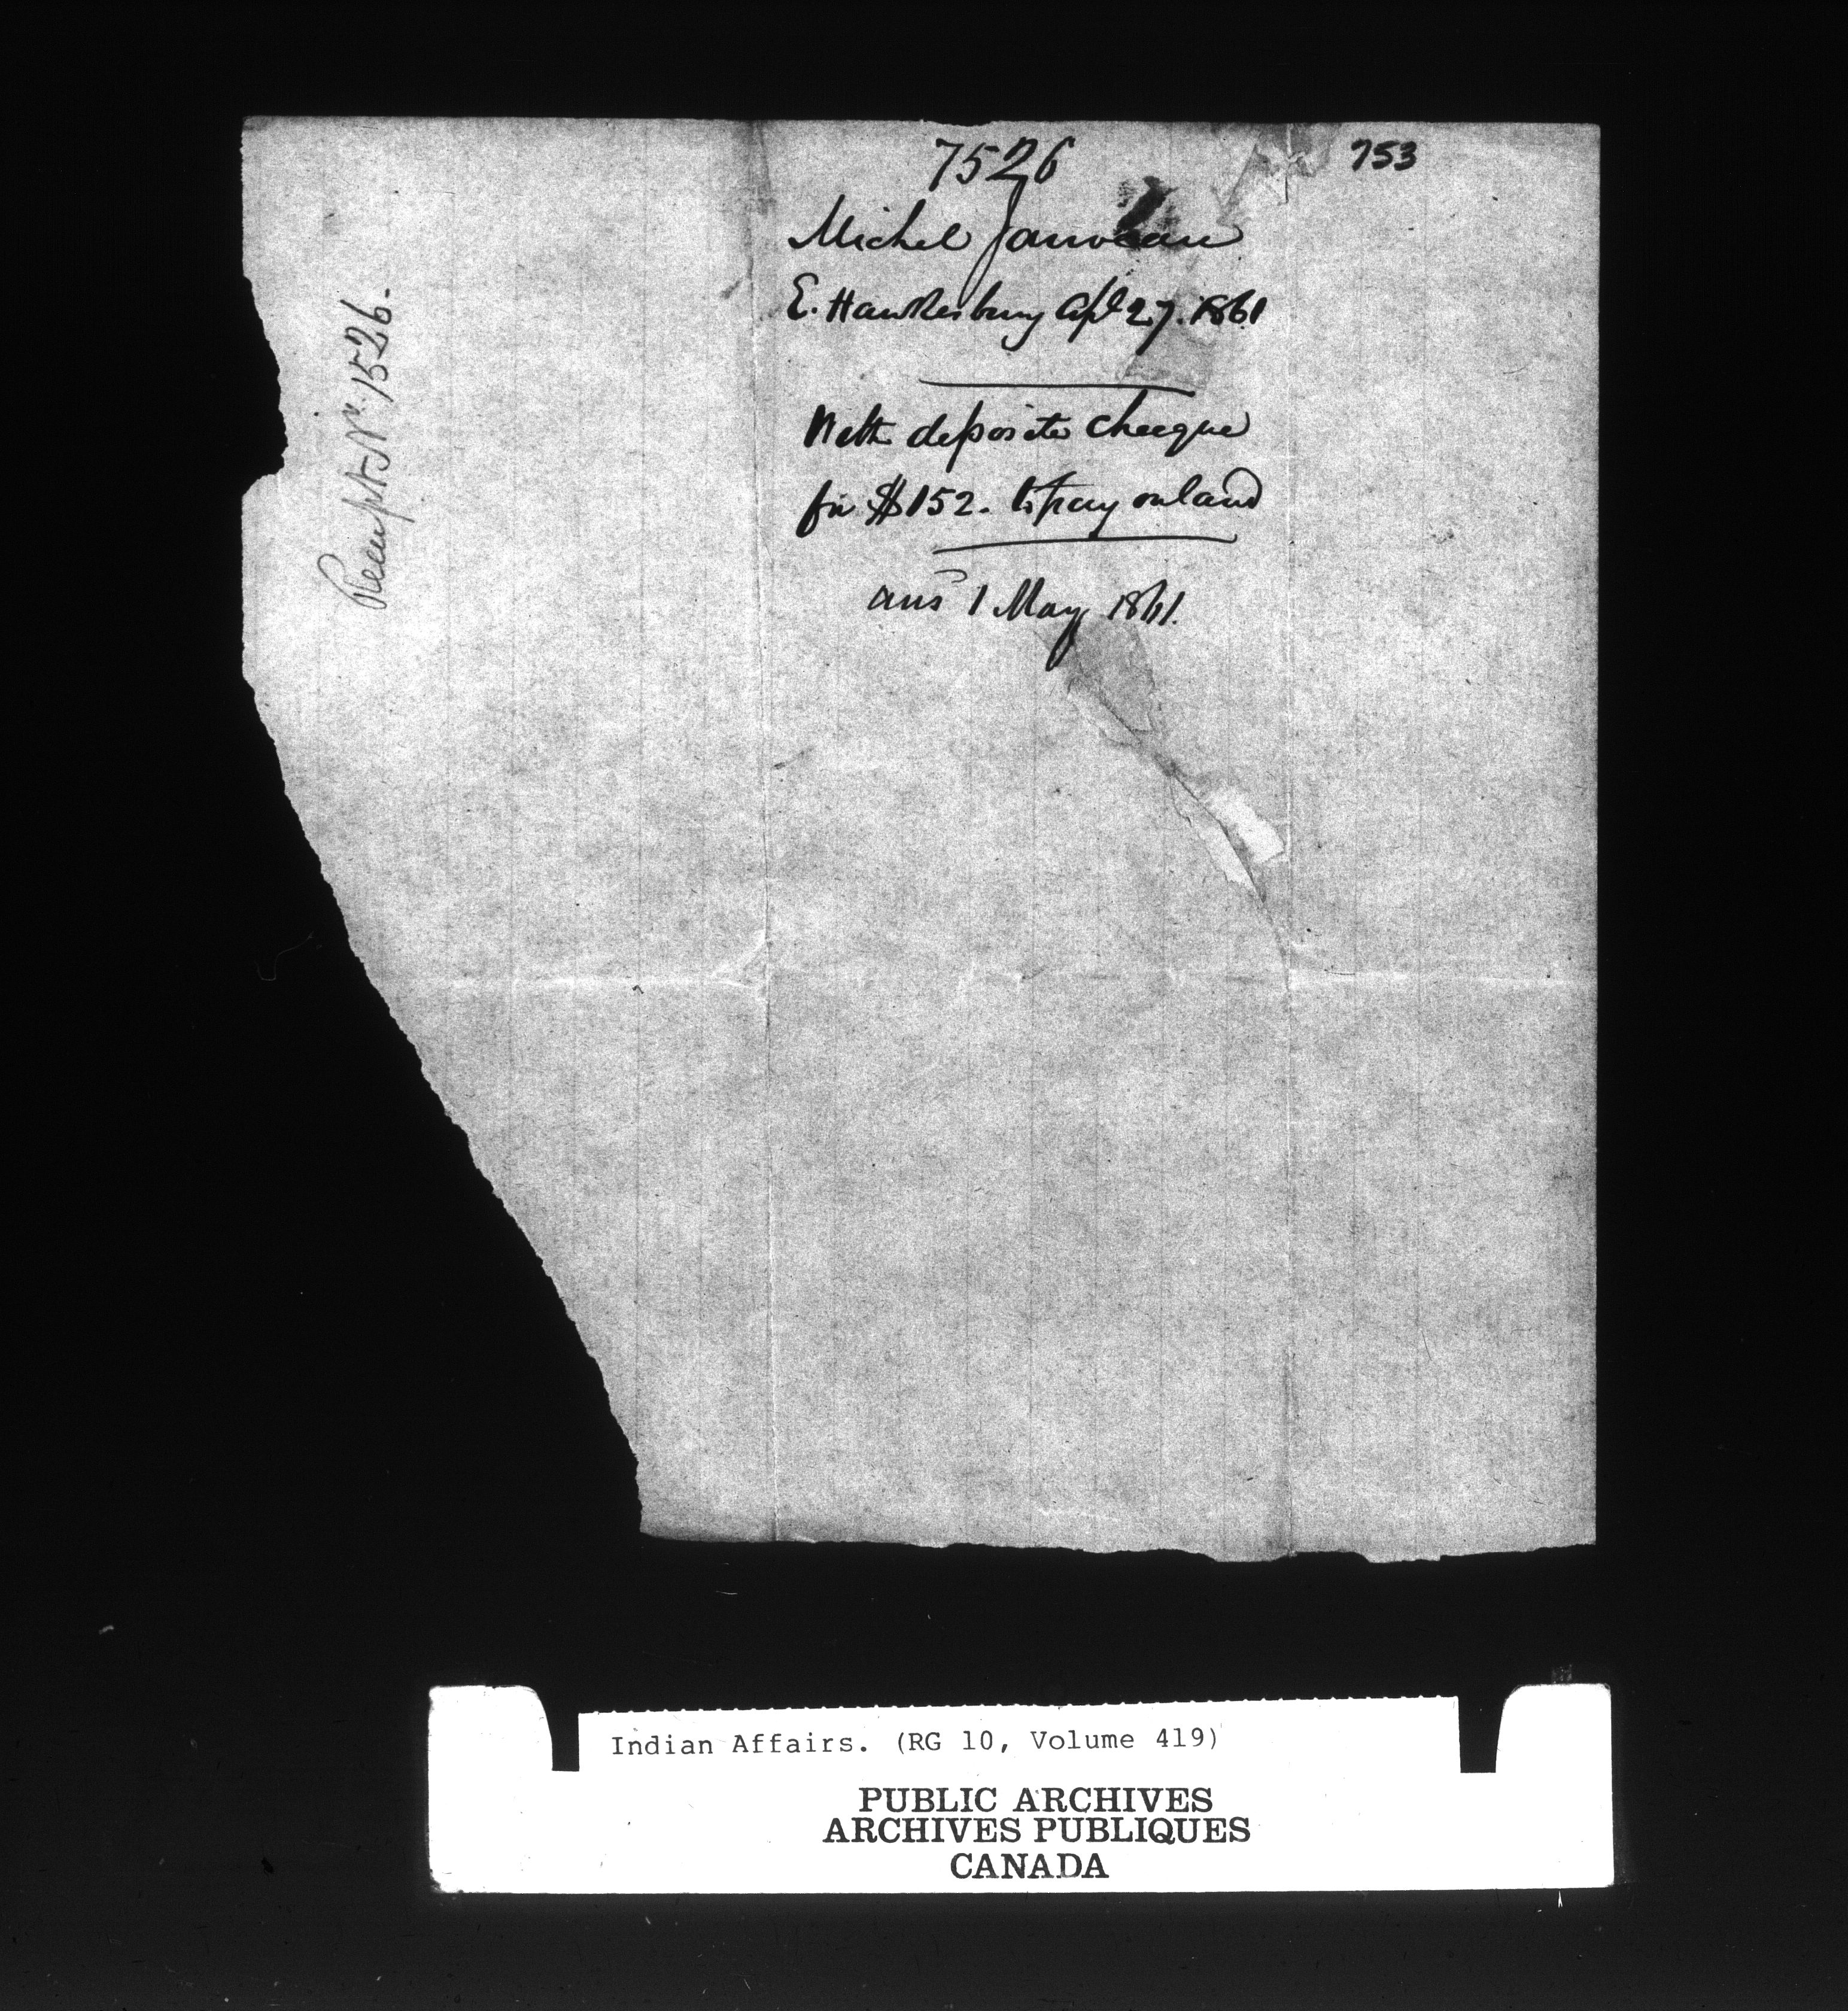 7526
753
Michel Jauveau
E. Hawkesbury Apl 27. 1861
With deposite cheque
for $152. to pay on land
ans 1 May 1861.
Receipt Nr. 1526.
Indian Affairs. (RG 10, Volume 419)
PUBLIC ARCHIVES
ARCHIVES PUBLIQUES
CANADA